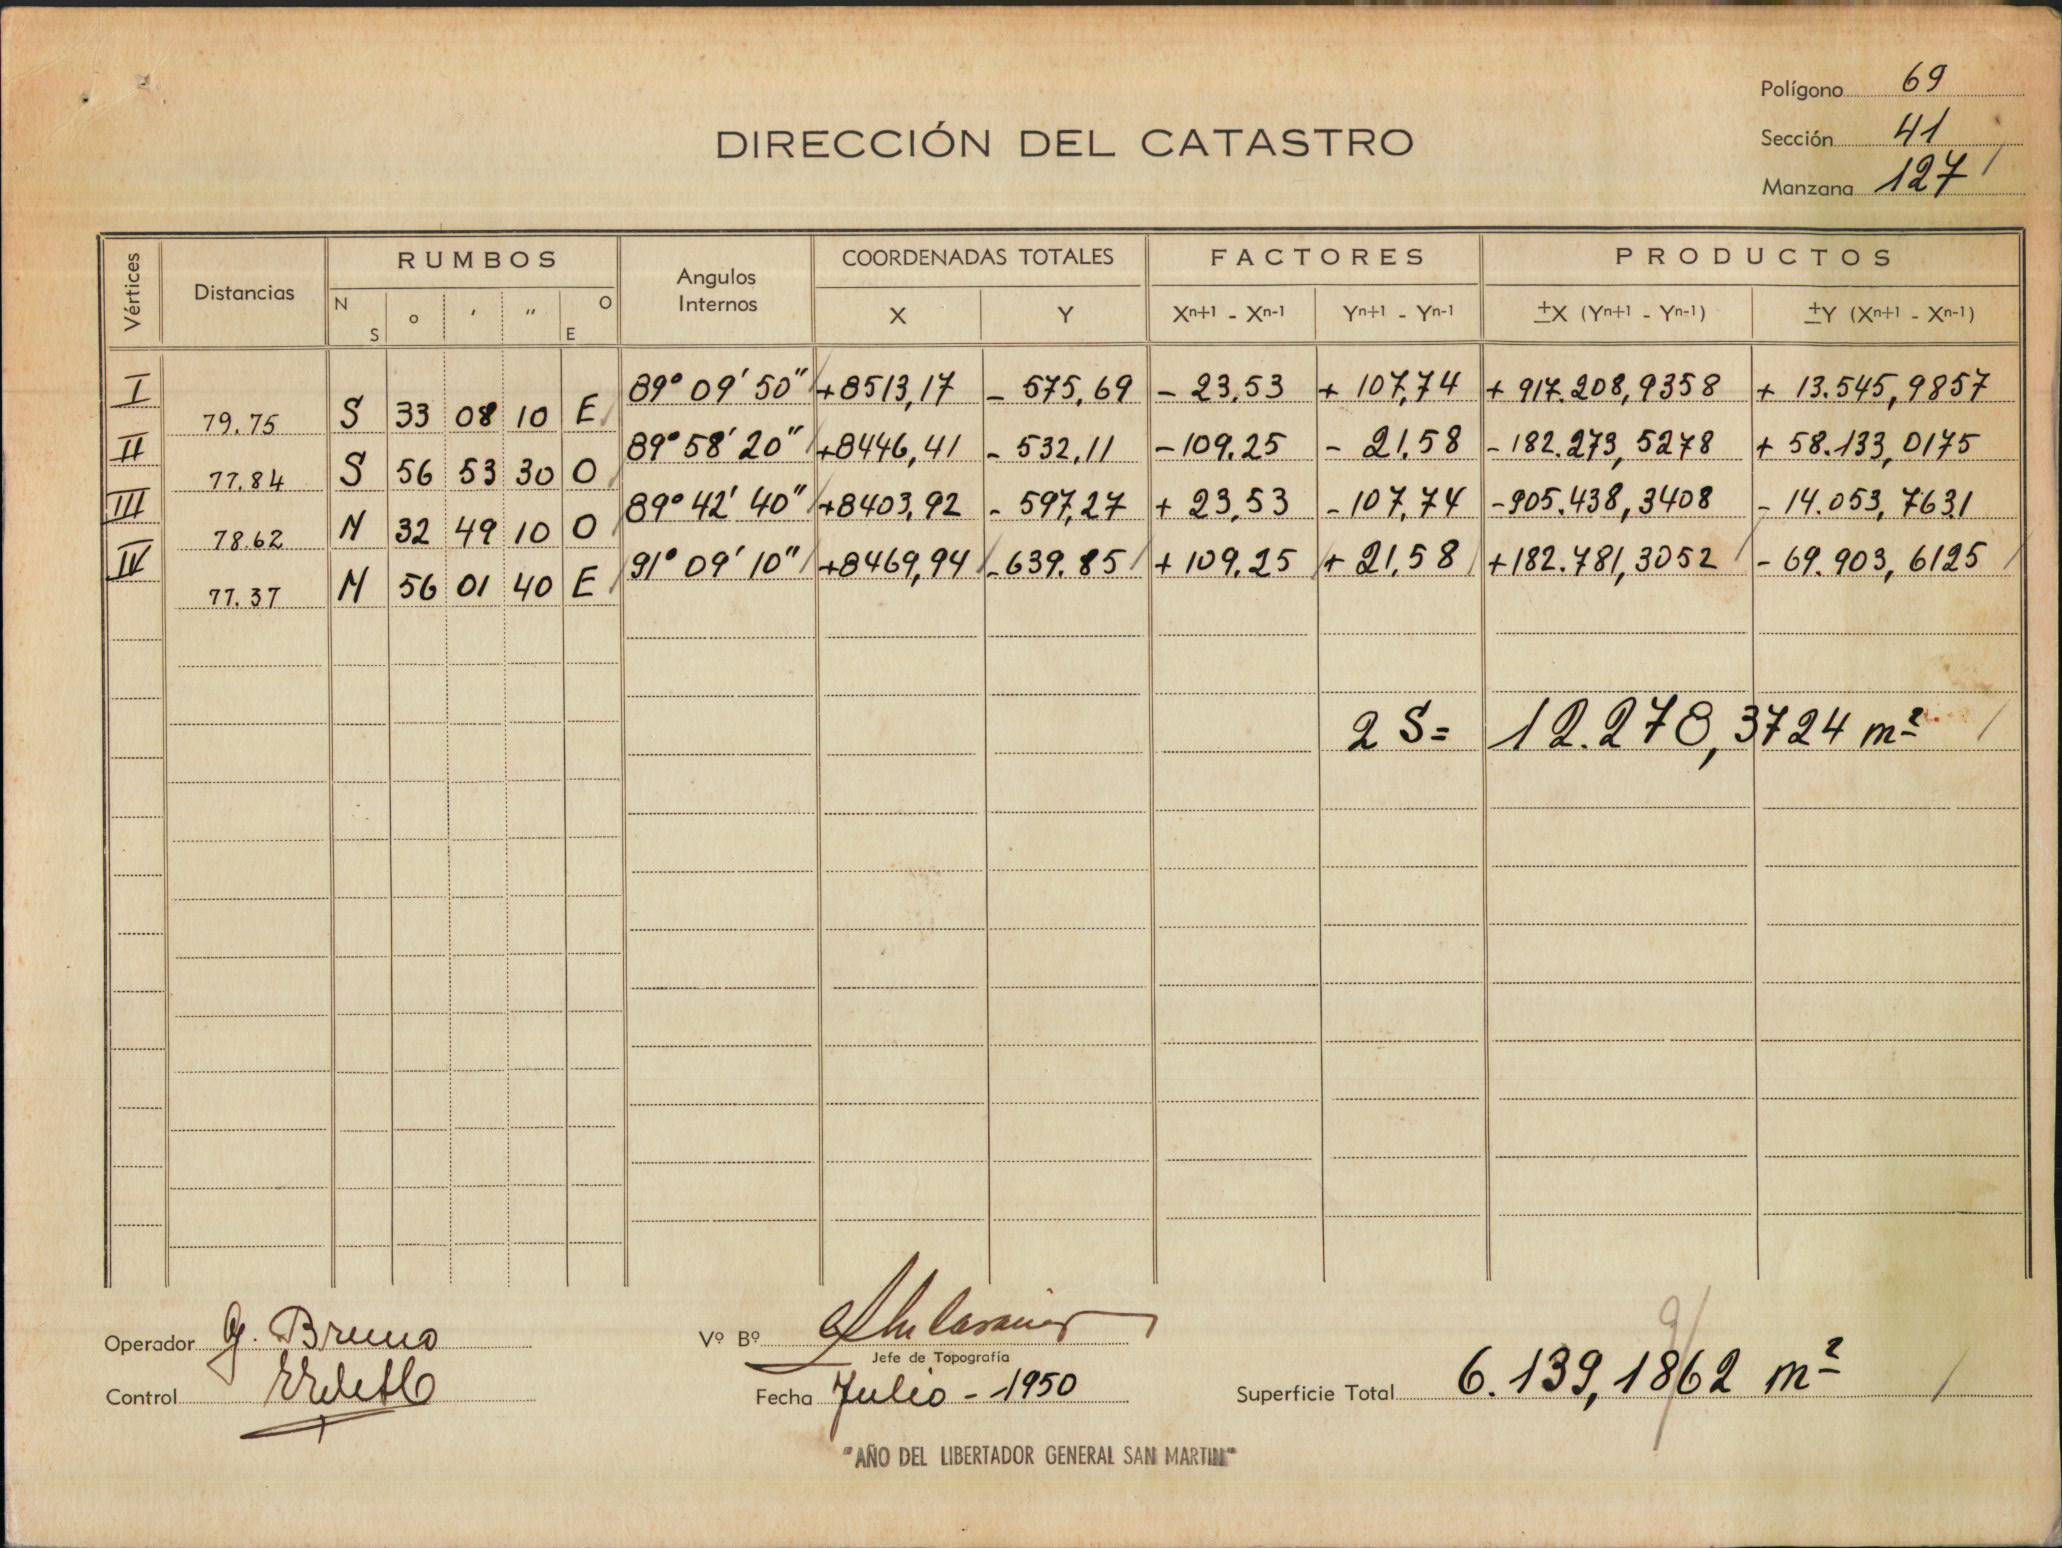 Polígono 69
DIRECCIÓN DEL CATASTRO
Sección 41
Manzana 127
Vértices Distancias RUMBOS Angulos Internos COORDENADAS TOTALES FACTORES PRODUCTOS
N S ° ' " O E X Y Xn+1 - Xn-1 Yn+1 - Yn-1 ±X (Yn+1 - Yn-1) ±Y (Xn+1 - Xn-1)
I 89° 09' 50" +8513,17 - 575,69 - 23,53 + 107,74 + 917.208,9358 + 13.545,9857
79.75 S 33 08 10 E
II 89° 58' 20" +8446,41 - 532,11 - 109.25 - 21,58 - 182.273,5278 + 58.133,0175
77.84 S 56 53 30 O
III 89° 42' 40" +8403,92 - 597,27 + 23,53 - 107,74 - 905.438,3408 - 14.053,7631
78.62 N 32 49 10 O
IV 91° 09' 10" +8469,94 - 639.85 + 109.25 + 21,58 + 182.781,3052 - 69.903,6125
77.37 N 56 01 40 E
2 S = 12.278,3724 m²
Operador G. Bruno
Vº Bº
Jefe de Topografía
Control
Fecha Julio - 1950
Superficie Total 6.139,1862 m²
"AÑO DEL LIBERTADOR GENERAL SAN MARTIN"